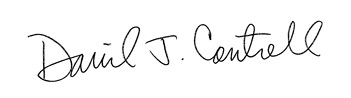 Daniel J. Cantrell